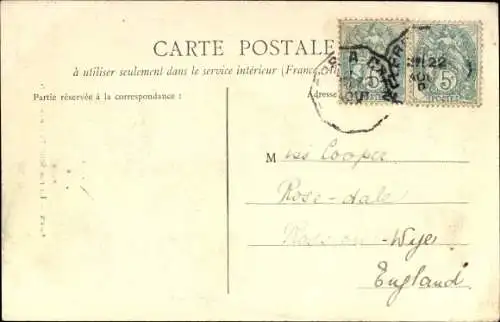 CARTE POSTALE
à utiliser seulement dans le service intérieur (France, Al
Partie réservée à la correspondance :
Adresse
5 5
POSTES POSTES
22
M iss Cooper
Rose-dale
Ross on-Wye
England